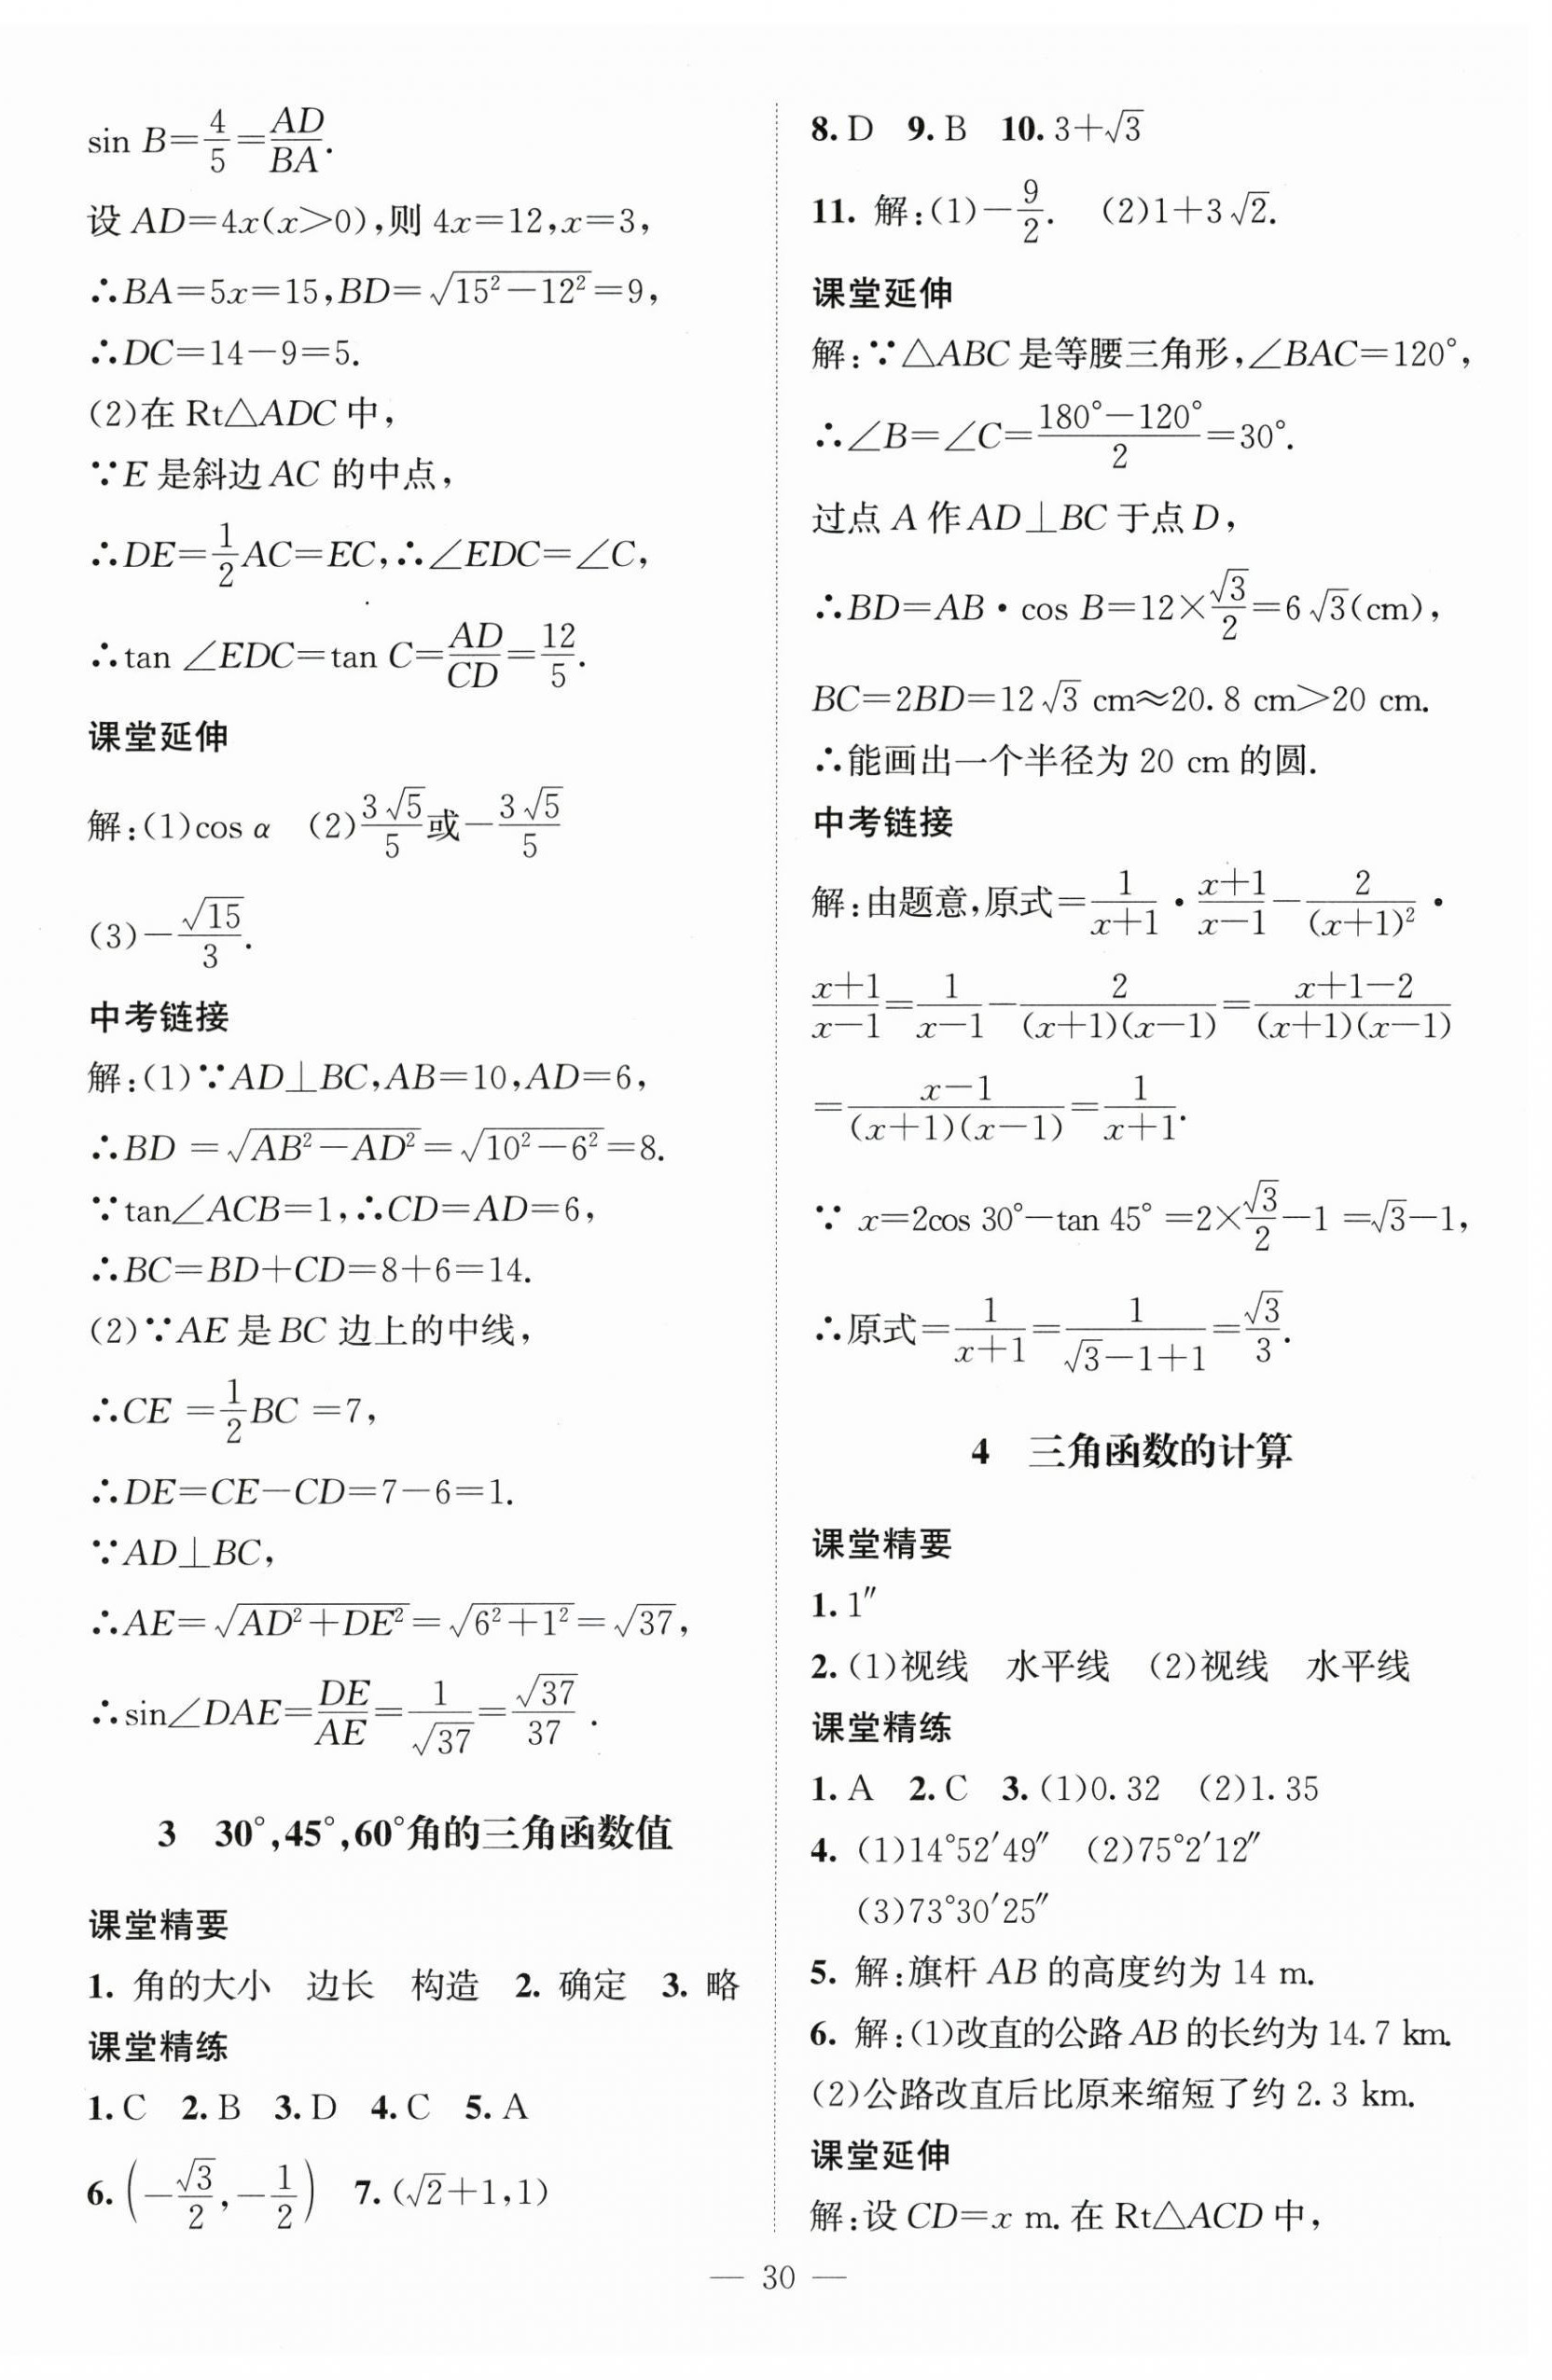 sin B=4/5=AD/BA.
设 AD=4x(x>0),则 4x=12,x=3,
∴BA=5x=15,BD=√(15²-12²)=9,
∴DC=14-9=5.
(2)在 Rt△ADC 中,
∵E 是斜边 AC 的中点,
∴DE=1/2AC=EC,∴∠EDC=∠C,
∴tan ∠EDC=tan C=AD/CD=12/5.
课堂延伸
解:(1)cos α (2)3√5/5或-3√5/5
(3)-√15/3.
中考链接
解:(1)∵AD⊥BC,AB=10,AD=6,
∴BD =√(AB²-AD²)=√(10²-6²)=8.
∵tan∠ACB=1,∴CD=AD=6,
∴BC=BD+CD=8+6=14.
(2)∵AE 是 BC 边上的中线,
∴CE =1/2BC =7,
∴DE=CE-CD=7-6=1.
∵AD⊥BC,
∴AE=√(AD²+DE²)=√(6²+1²)=√37,
∴sin∠DAE=DE/AE=1/√37=√37/37.
3 30°,45°,60°角的三角函数值
课堂精要
1. 角的大小 边长 构造 2. 确定 3. 略
课堂精练
1. C 2. B 3. D 4. C 5. A
6. (-√3/2,-1/2) 7. (√2+1,1)
8. D 9. B 10. 3+√3
11. 解:(1)-9/2. (2)1+3√2.
课堂延伸
解:∵△ABC 是等腰三角形,∠BAC=120°,
∴∠B=∠C=(180°-120°)/2=30°.
过点 A 作 AD⊥BC 于点 D,
∴BD=AB·cos B=12×√3/2=6√3(cm),
BC=2BD=12√3 cm≈20.8 cm>20 cm.
∴能画出一个半径为 20 cm 的圆.
中考链接
解:由题意,原式=1/(x+1)·(x+1)/(x-1)-2/(x+1)²·
(x+1)/(x-1)=1/(x-1)-2/((x+1)(x-1))=(x+1-2)/((x+1)(x-1))
=(x-1)/((x+1)(x-1))=1/(x+1).
∵ x=2cos 30°-tan 45° =2×√3/2-1 =√3-1,
∴原式=1/(x+1)=1/(√3-1+1)=√3/3.
4 三角函数的计算
课堂精要
1. 1″
2. (1)视线 水平线 (2)视线 水平线
课堂精练
1. A 2. C 3. (1)0.32 (2)1.35
4. (1)14°52′49″ (2)75°2′12″
(3)73°30′25″
5. 解:旗杆 AB 的高度约为 14 m.
6. 解:(1)改直的公路 AB 的长约为 14.7 km.
(2)公路改直后比原来缩短了约 2.3 km.
课堂延伸
解:设 CD=x m. 在 Rt△ACD 中,
— 30 —